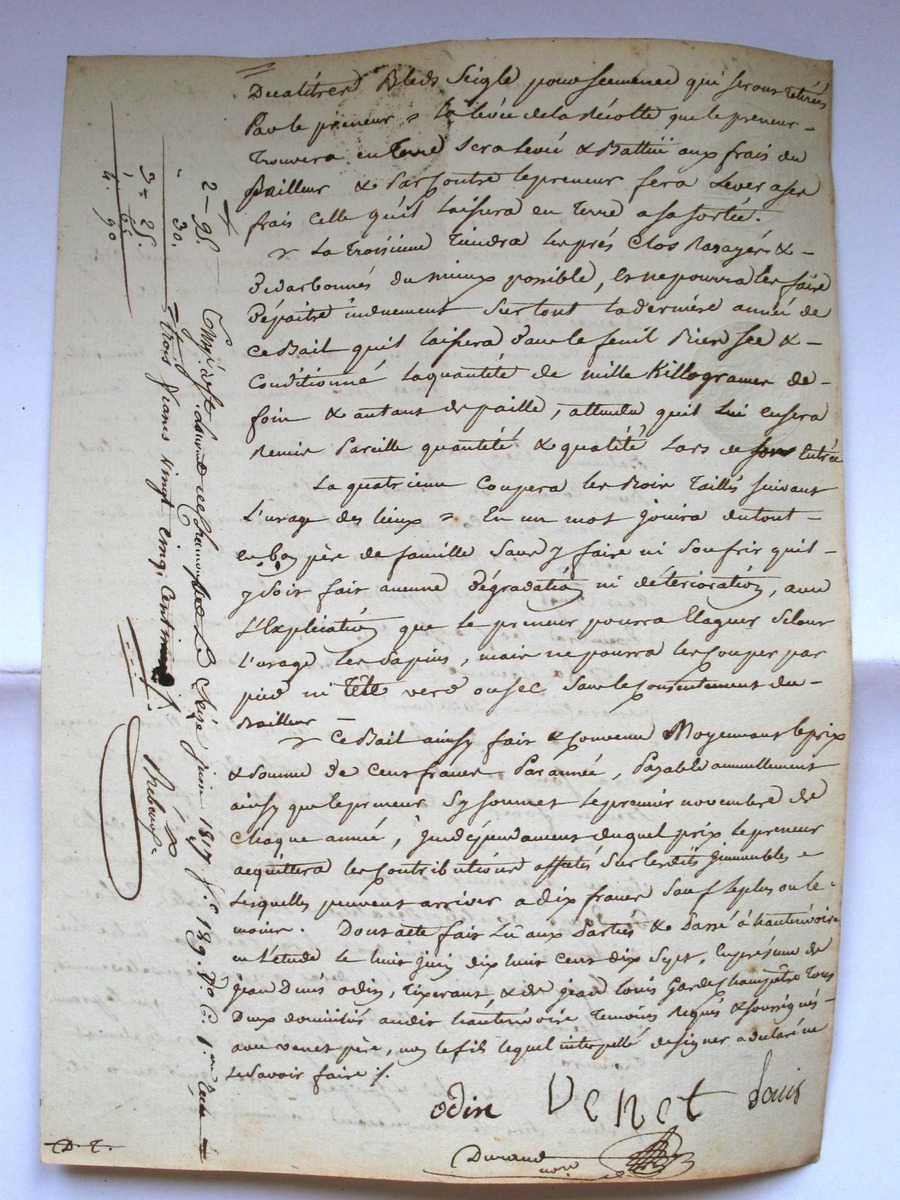 Decalitres Bleds Seigle pour semence qui seront retirés
Par le preneur = la levée de la Récolte que le preneur
trouvera en terre sera levée & Battüe aux frais du
Bailleur & Par contre le preneur fera lever a ses
frais celle qu'il laissera en terre a sa sortie.
= La troisieme tiendra les prés clos Rasayés &
du mieux possible, et ne pourra les faire
dépaitre induement Surtout la dernière année de
ce Bail qu'il laissera dans le fenil Bien Sec &
Conditionné la quantité de mille Killogrames de
foin & autant de paille, attendu qu'il lui en sera
Remis Pareille quantité & qualité Lors de son entrée
La quatrieme Coupera les Bois taillis suivant
L'usage des lieux = En un mot jouira du tout
en bon père de famille sans y faire ni souffrir qu'il
y soit fait aucune dégradation ni détérioration, avec
L'Explication que le preneur pourra Elaguer selon
l'usage les sapins, mais ne pourra les couper par
pied ni tête verd ou sec sans le consentement du
Bailleur =
= Ce Bail ainsy fait & convenu Moyennant le prix
& somme de cent francs Par année, Payable annuellement
ainsy que le preneur s'y soumet le premier novembre de
chaque année, independament duquel prix le preneur
acquittera les contributions affectés sur lesdits immeubles =
lesquelles peuvent arriver a dix francs sauf le plus ou le
moins. Dont acte fait Lû aux Parties & Passé à hauterivoire
en l'étude le huit juin dix huit cent dix sept, En présence de
jean Denis odin, tixerant, & de jean Louis Garde champêtre tous
Deux domiciliés audit hauterivoire temoins Requis & soussignés
avec venet père, non le fils lequel interpellé de signer a declaré ne
le savoir faire /.
odin Venet Louis
Durand nore
D. T.
2 - 95
30.
3 = 25.
1. 65.
4. 90
Engé à St Laurent de Chamousset Le Seize juin 1817 f.° 139. V.o C. 1.ere Reçu
trois francs vingt cinq centimes